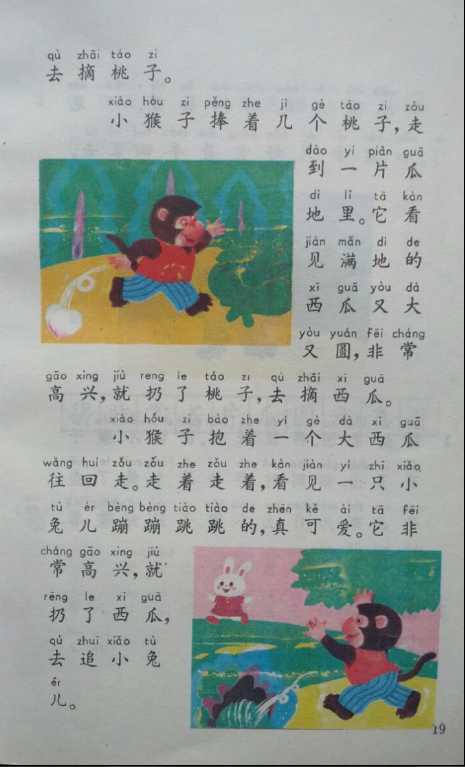 qù zhāi táo zi
去摘桃子。
xiǎo hóu zi pěng zhe jǐ gè táo zi zǒu
小猴子捧着几个桃子,走
dào yí piàn guā
到一片瓜
dì lǐ tā kàn
地里。它看
jiàn mǎn dì de
见满地的
xī guā yòu dà
西瓜又大
yòu yuán fēi cháng
又圆,非常
gāo xìng jiù rēng le táo zi qù zhāi xī guā
高兴,就扔了桃子,去摘西瓜。
xiǎo hóu zi bào zhe yí gè dà xī guā
小猴子抱着一个大西瓜
wǎng huí zǒu zǒu zhe zǒu zhe kàn jiàn yì zhī xiǎo
往回走。走着走着,看见一只小
tù ér bèng bèng tiào tiào de zhēn kě ài tā fēi
兔儿蹦蹦跳跳的,真可爱。它非
cháng gāo xìng jiù
常高兴,就
rēng le xī guā
扔了西瓜,
qù zhuī xiǎo tù
去追小兔
ér
儿。
19